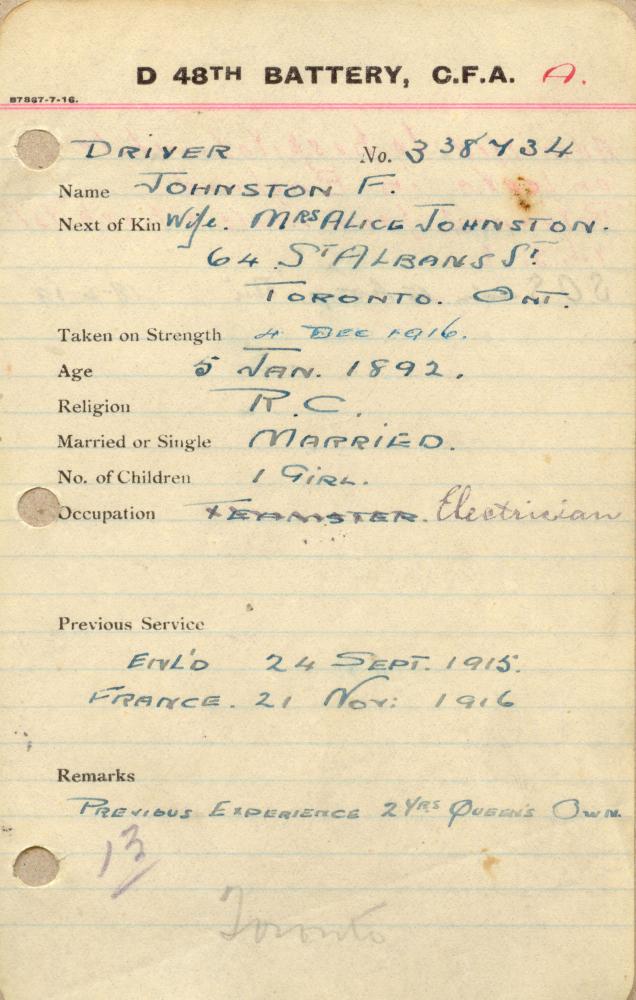 D 48TH BATTERY, C.F.A. A.
B7867-7-16.
DRIVER No. 338734
Name JOHNSTON F.
Next of Kin Wife. MRS ALICE JOHNSTON.
64 ST ALBANS ST.
TORONTO. ONT.
Taken on Strength 4 DEC 1916.
Age 5 JAN. 1892.
Religion R.C.
Married or Single MARRIED.
No. of Children 1 GIRL.
Occupation TEAMSTER. Electrician
Previous Service
ENL'D 24 SEPT. 1915.
FRANCE. 21 NOV: 1916
Remarks
PREVIOUS EXPERIENCE 2 YRS QUEEN'S OWN.
13
Toronto